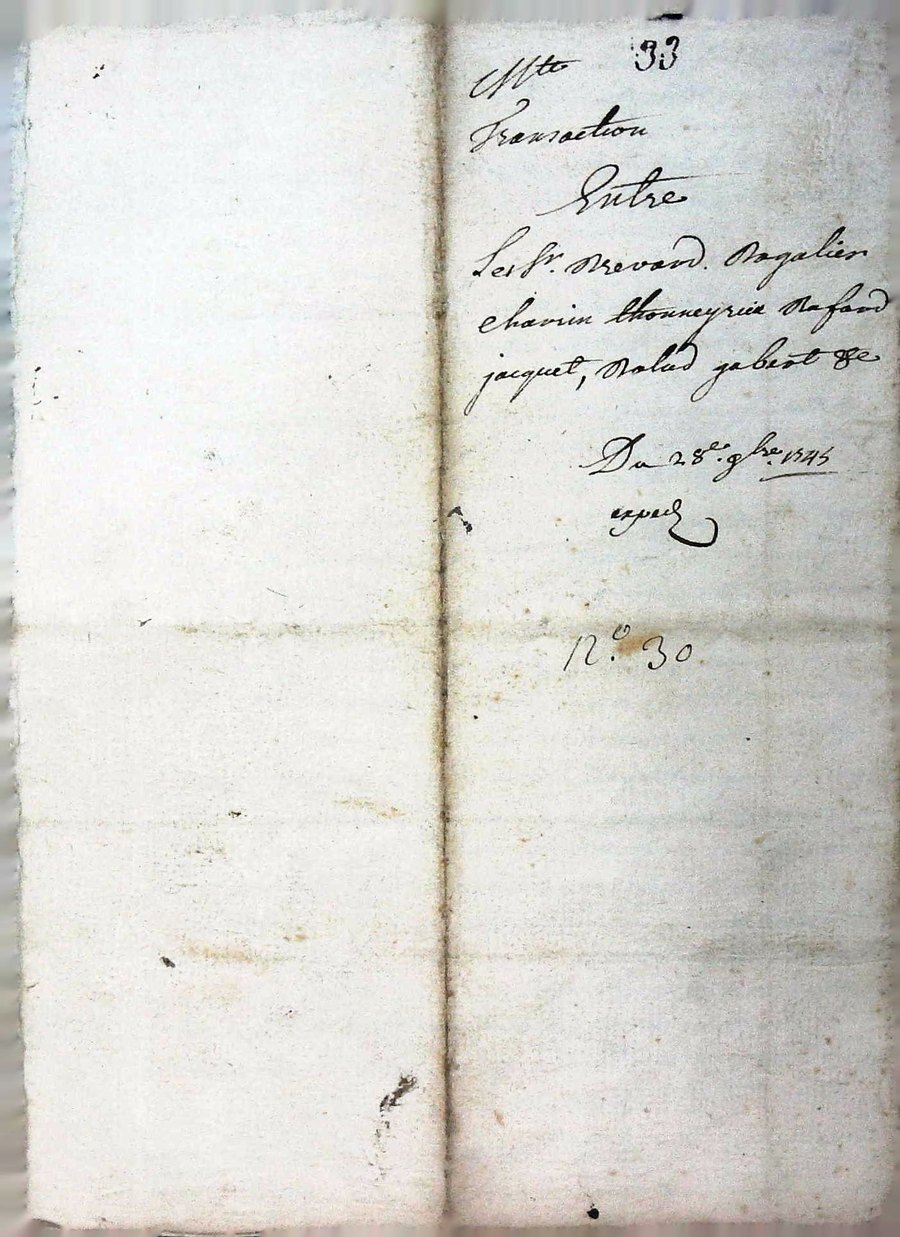 33
Transaction
Entre
Les Sr. Brevard. Bogalien
chavin thonneyrieu Bafard
jacquet, Balud gabert &c
Du 28e. 9bre. 1745
exped
No. 30